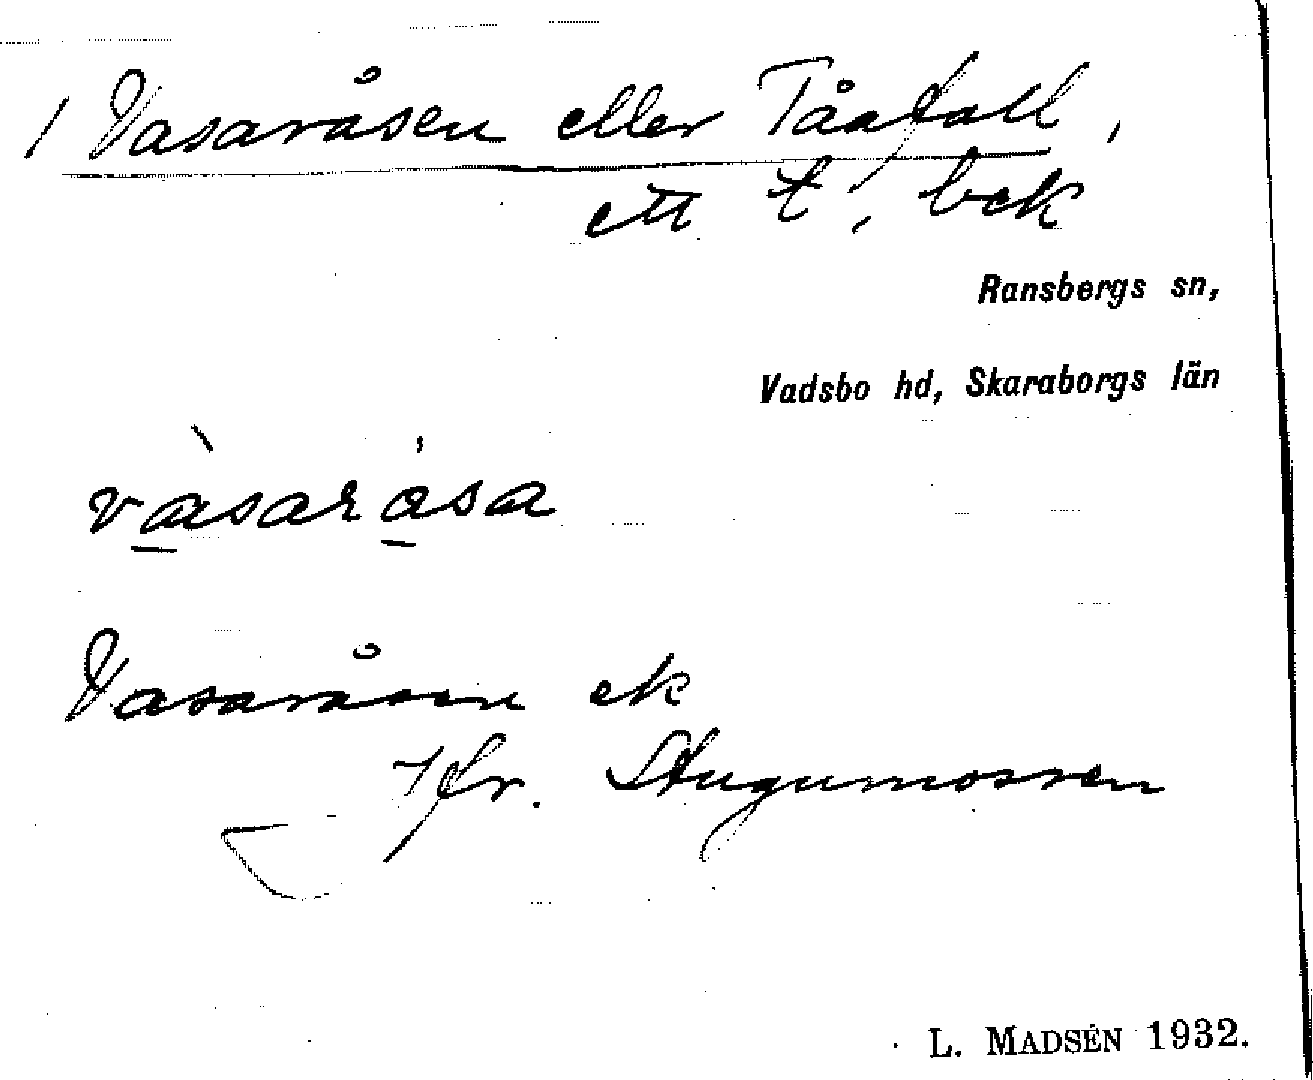 1 Vasaråsen eller Tåafall,
ett t, bek
Ransbergs sn,
Vadsbo hd, Skaraborgs län
vàsarása
Vasaråsen ek
Jfr. Stugumossen
L. MADSÉN 1932.